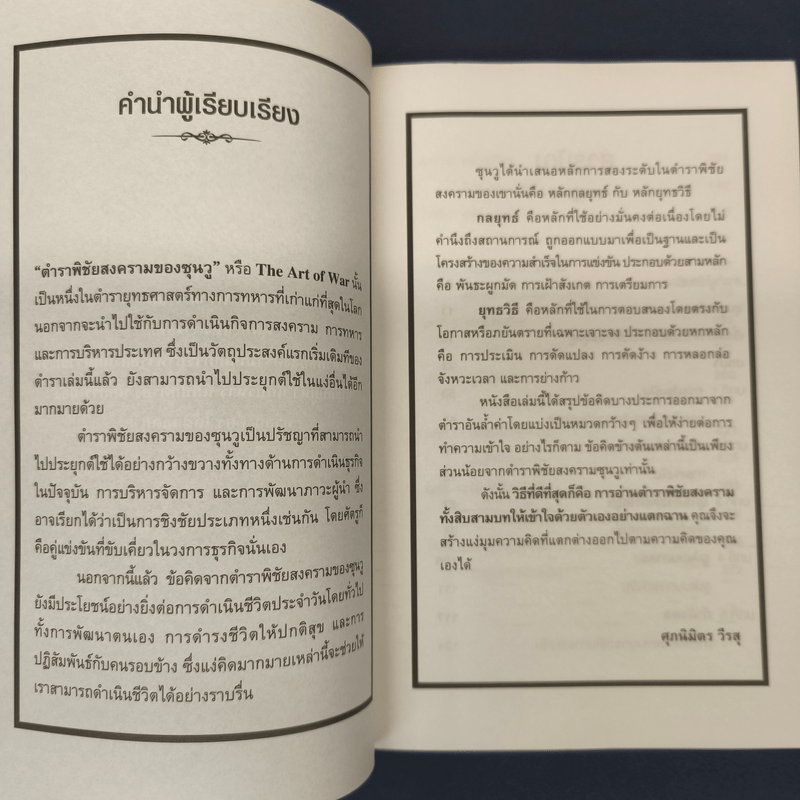 คำนำผู้เรียบเรียง
“ตำราพิชัยสงครามของซุนวู” หรือ The Art of War นั้น
เป็นหนึ่งในตำรายุทธศาสตร์ทางการทหารที่เก่าแก่ที่สุดในโลก
นอกจากจะนำไปใช้กับการดำเนินกิจการสงคราม การทหาร
และการบริหารประเทศ ซึ่งเป็นวัตถุประสงค์แรกเริ่มเดิมทีของ
ตำราเล่มนี้แล้ว ยังสามารถนำไปประยุกต์ใช้ในแง่อื่นได้อีก
มากมายด้วย
ตำราพิชัยสงครามของซุนวูเป็นปรัชญาที่สามารถนำ
ไปประยุกต์ใช้ได้อย่างกว้างขวางทั้งทางด้านการดำเนินธุรกิจ
ในปัจจุบัน การบริหารจัดการ และการพัฒนาภาวะผู้นำ ซึ่ง
อาจเรียกได้ว่าเป็นการชิงชัยประเภทหนึ่งเช่นกัน โดยศัตรูก็
คือคู่แข่งขันที่ขับเคี่ยวในวงการธุรกิจนั่นเอง
นอกจากนี้แล้ว ข้อคิดจากตำราพิชัยสงครามของซุนวู
ยังมีประโยชน์อย่างยิ่งต่อการดำเนินชีวิตประจำวันโดยทั่วไป
ทั้งการพัฒนาตนเอง การดำรงชีวิตให้ปกติสุข และการ
ปฏิสัมพันธ์กับคนรอบข้าง ซึ่งแง่คิดมากมายเหล่านี้จะช่วยให้
เราสามารถดำเนินชีวิตได้อย่างราบรื่น
ซุนวูได้นำเสนอหลักการสองระดับในตำราพิชัย
สงครามของเขานั่นคือ หลักกลยุทธ์ กับ หลักยุทธวิธี
กลยุทธ์ คือหลักที่ใช้อย่างมั่นคงต่อเนื่องโดยไม่
คำนึงถึงสถานการณ์ ถูกออกแบบมาเพื่อเป็นฐานและเป็น
โครงสร้างของความสำเร็จในการแข่งขัน ประกอบด้วยสามหลัก
คือ พันธะผูกมัด การเฝ้าสังเกต การเตรียมการ
ยุทธวิธี คือหลักที่ใช้ในการตอบสนองโดยตรงกับ
โอกาสหรือภยันตรายที่เฉพาะเจาะจง ประกอบด้วยหกหลัก
คือ การประเมิน การดัดแปลง การคัดง้าง การหลอกล่อ
จังหวะเวลา และการย่างก้าว
หนังสือเล่มนี้ได้สรุปข้อคิดบางประการออกมาจาก
ตำราอันล้ำค่าโดยแบ่งเป็นหมวดกว้างๆ เพื่อให้ง่ายต่อการ
ทำความเข้าใจ อย่างไรก็ตาม ข้อคิดข้างต้นเหล่านี้เป็นเพียง
ส่วนน้อยจากตำราพิชัยสงครามซุนวูเท่านั้น
ดังนั้น วิธีที่ดีที่สุดก็คือ การอ่านตำราพิชัยสงคราม
ทั้งสิบสามบทให้เข้าใจด้วยตัวเองอย่างแตกฉาน คุณจึงจะ
สร้างแง่มุมความคิดที่แตกต่างออกไปตามความคิดของคุณ
เองได้
ศุภนิมิตร วีรสุ